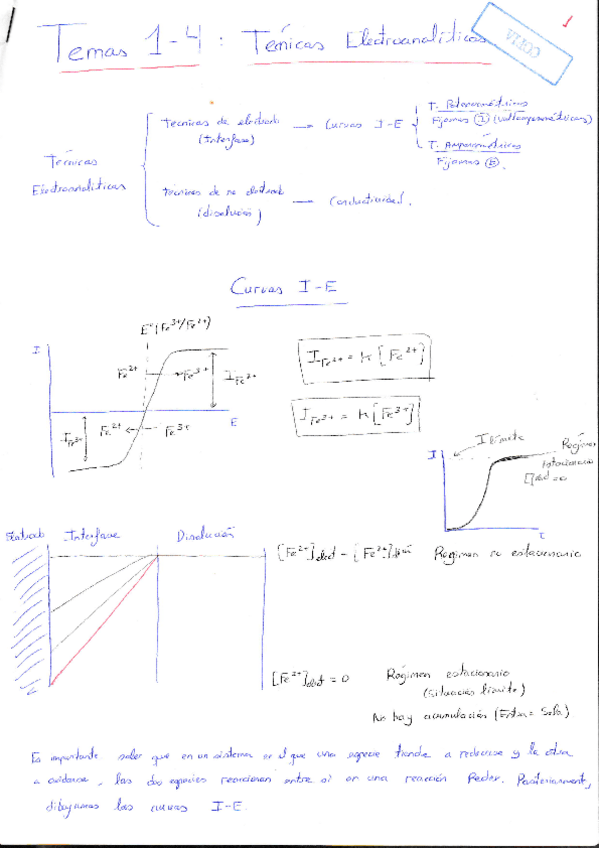 1
COPIA
Temas 1-4 : Técnicas Electroanalíticas
Técnicas Electroanalíticas
Técnicas de electrodo (Interfase) → Curvas I-E
T. Potenciométricas
Fijamos I (voltamperométricas)
T. Amperométricas
Fijamos E.
Técnicas de no electrodo (disolución) → Conductividad.
Curvas I-E
E°(Fe3+/Fe2+)
I
Fe2+ → Fe3+
I Fe2+
E
I Fe3+
Fe2+ ← Fe3+
I Fe2+ = K [Fe2+]
I Fe3+ = K [Fe3+]
I
I límite
Régimen estacionario
t
Electrodo Interfase Disolución
[Fe2+]elect - [Fe2+] Régimen no estacionario
[Fe2+]elect = 0 Régimen estacionario
(situación límite)
No hay acumulación (Entra = Sale)
Es importante saber que en un sistema en el que una especie tiende a reducirse y la otra
a oxidarse, las dos especies reaccionan entre sí en una reacción Redox. Posteriormente,
dibujamos las curvas I-E.